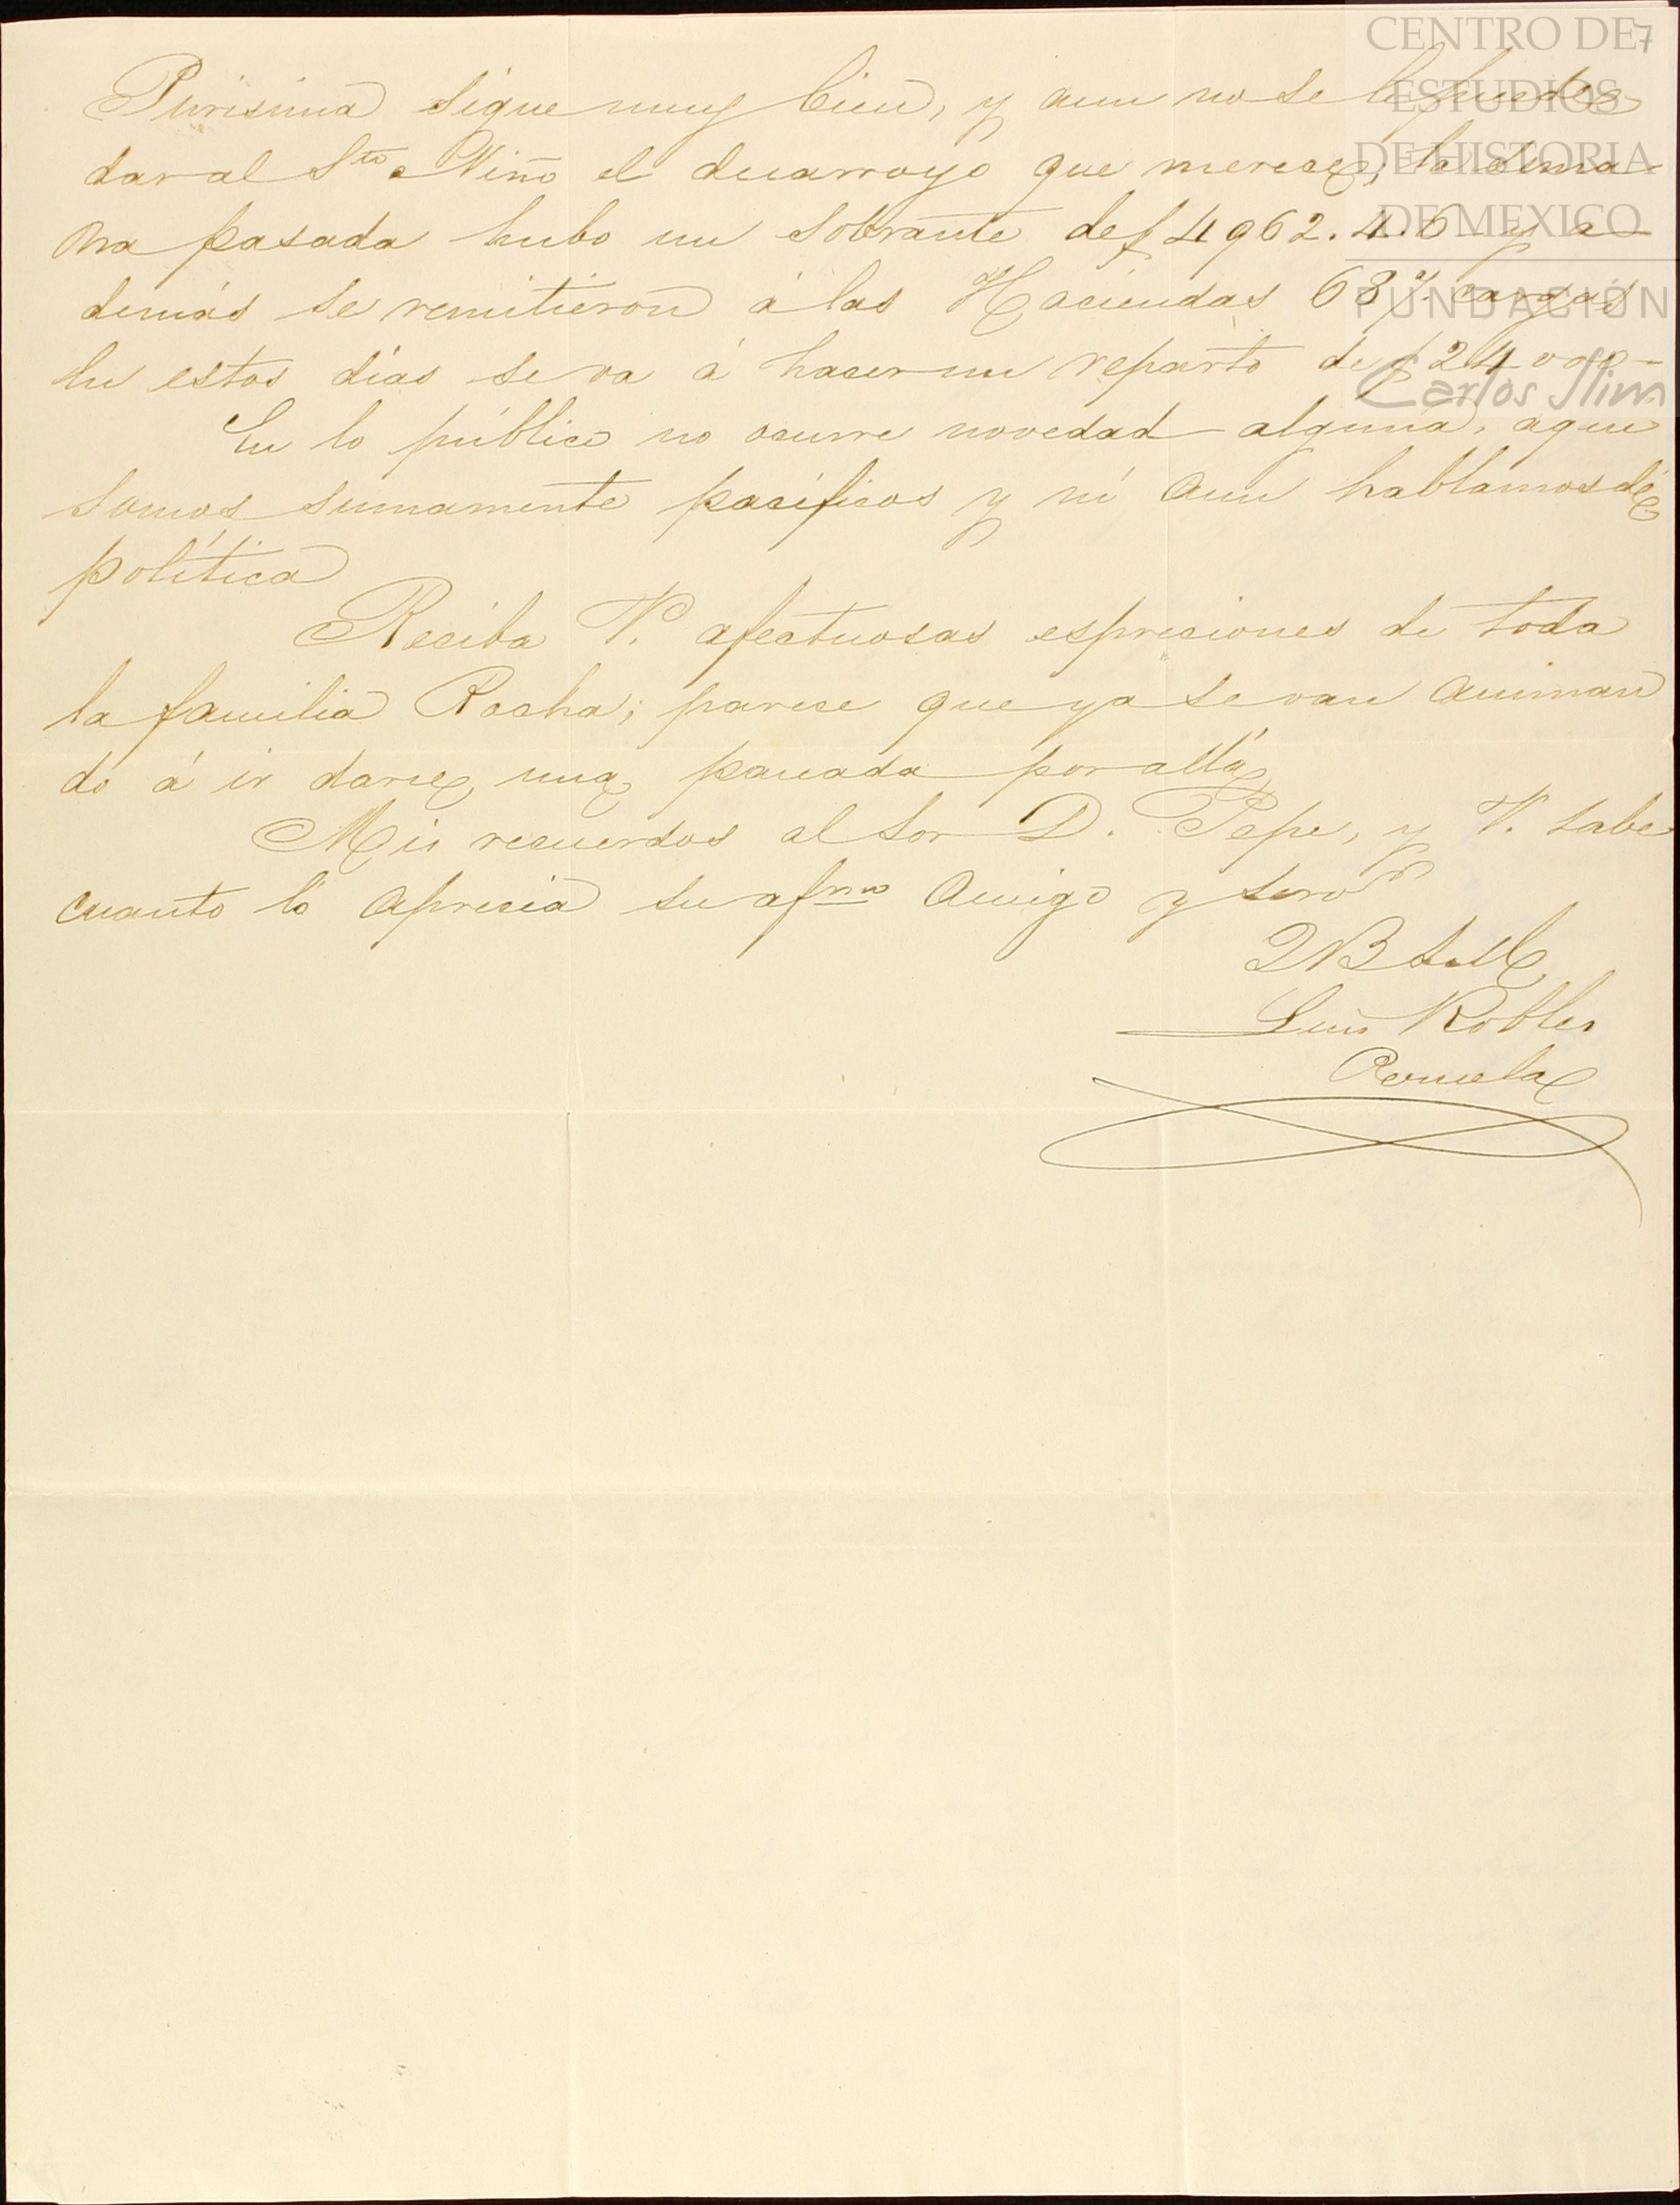 CENTRO DE
ESTUDIOS
DE HISTORIA
DE MEXICO
FUNDACIÓN
Carlos Slim
7
Purisima sigue muy bien, y aun no se le puede
dar al Sto Niño el decarroyo que merece; la sema-
na pasada hubo un sobrante de $ 4962.4.6 y a-
demás se remitieron á las Haciendas 68 cargas
En estos dias se va á hacer un reparto de $ 24000-
En lo público no ocurre novedad alguna, aqui
somos sumamente pacificos y ni aun hablamos de
politica
Reciba V. afectuosas espreciones de toda
la familia Rocha; parece que ya se van animan
do á ir darse una paceada por allá
Mis recuerdos al Sor D. Pepe, y V. sabe
cuanto lo aprecia su afmo amigo y servor
Q B S M
Luis Robles
Pezuela